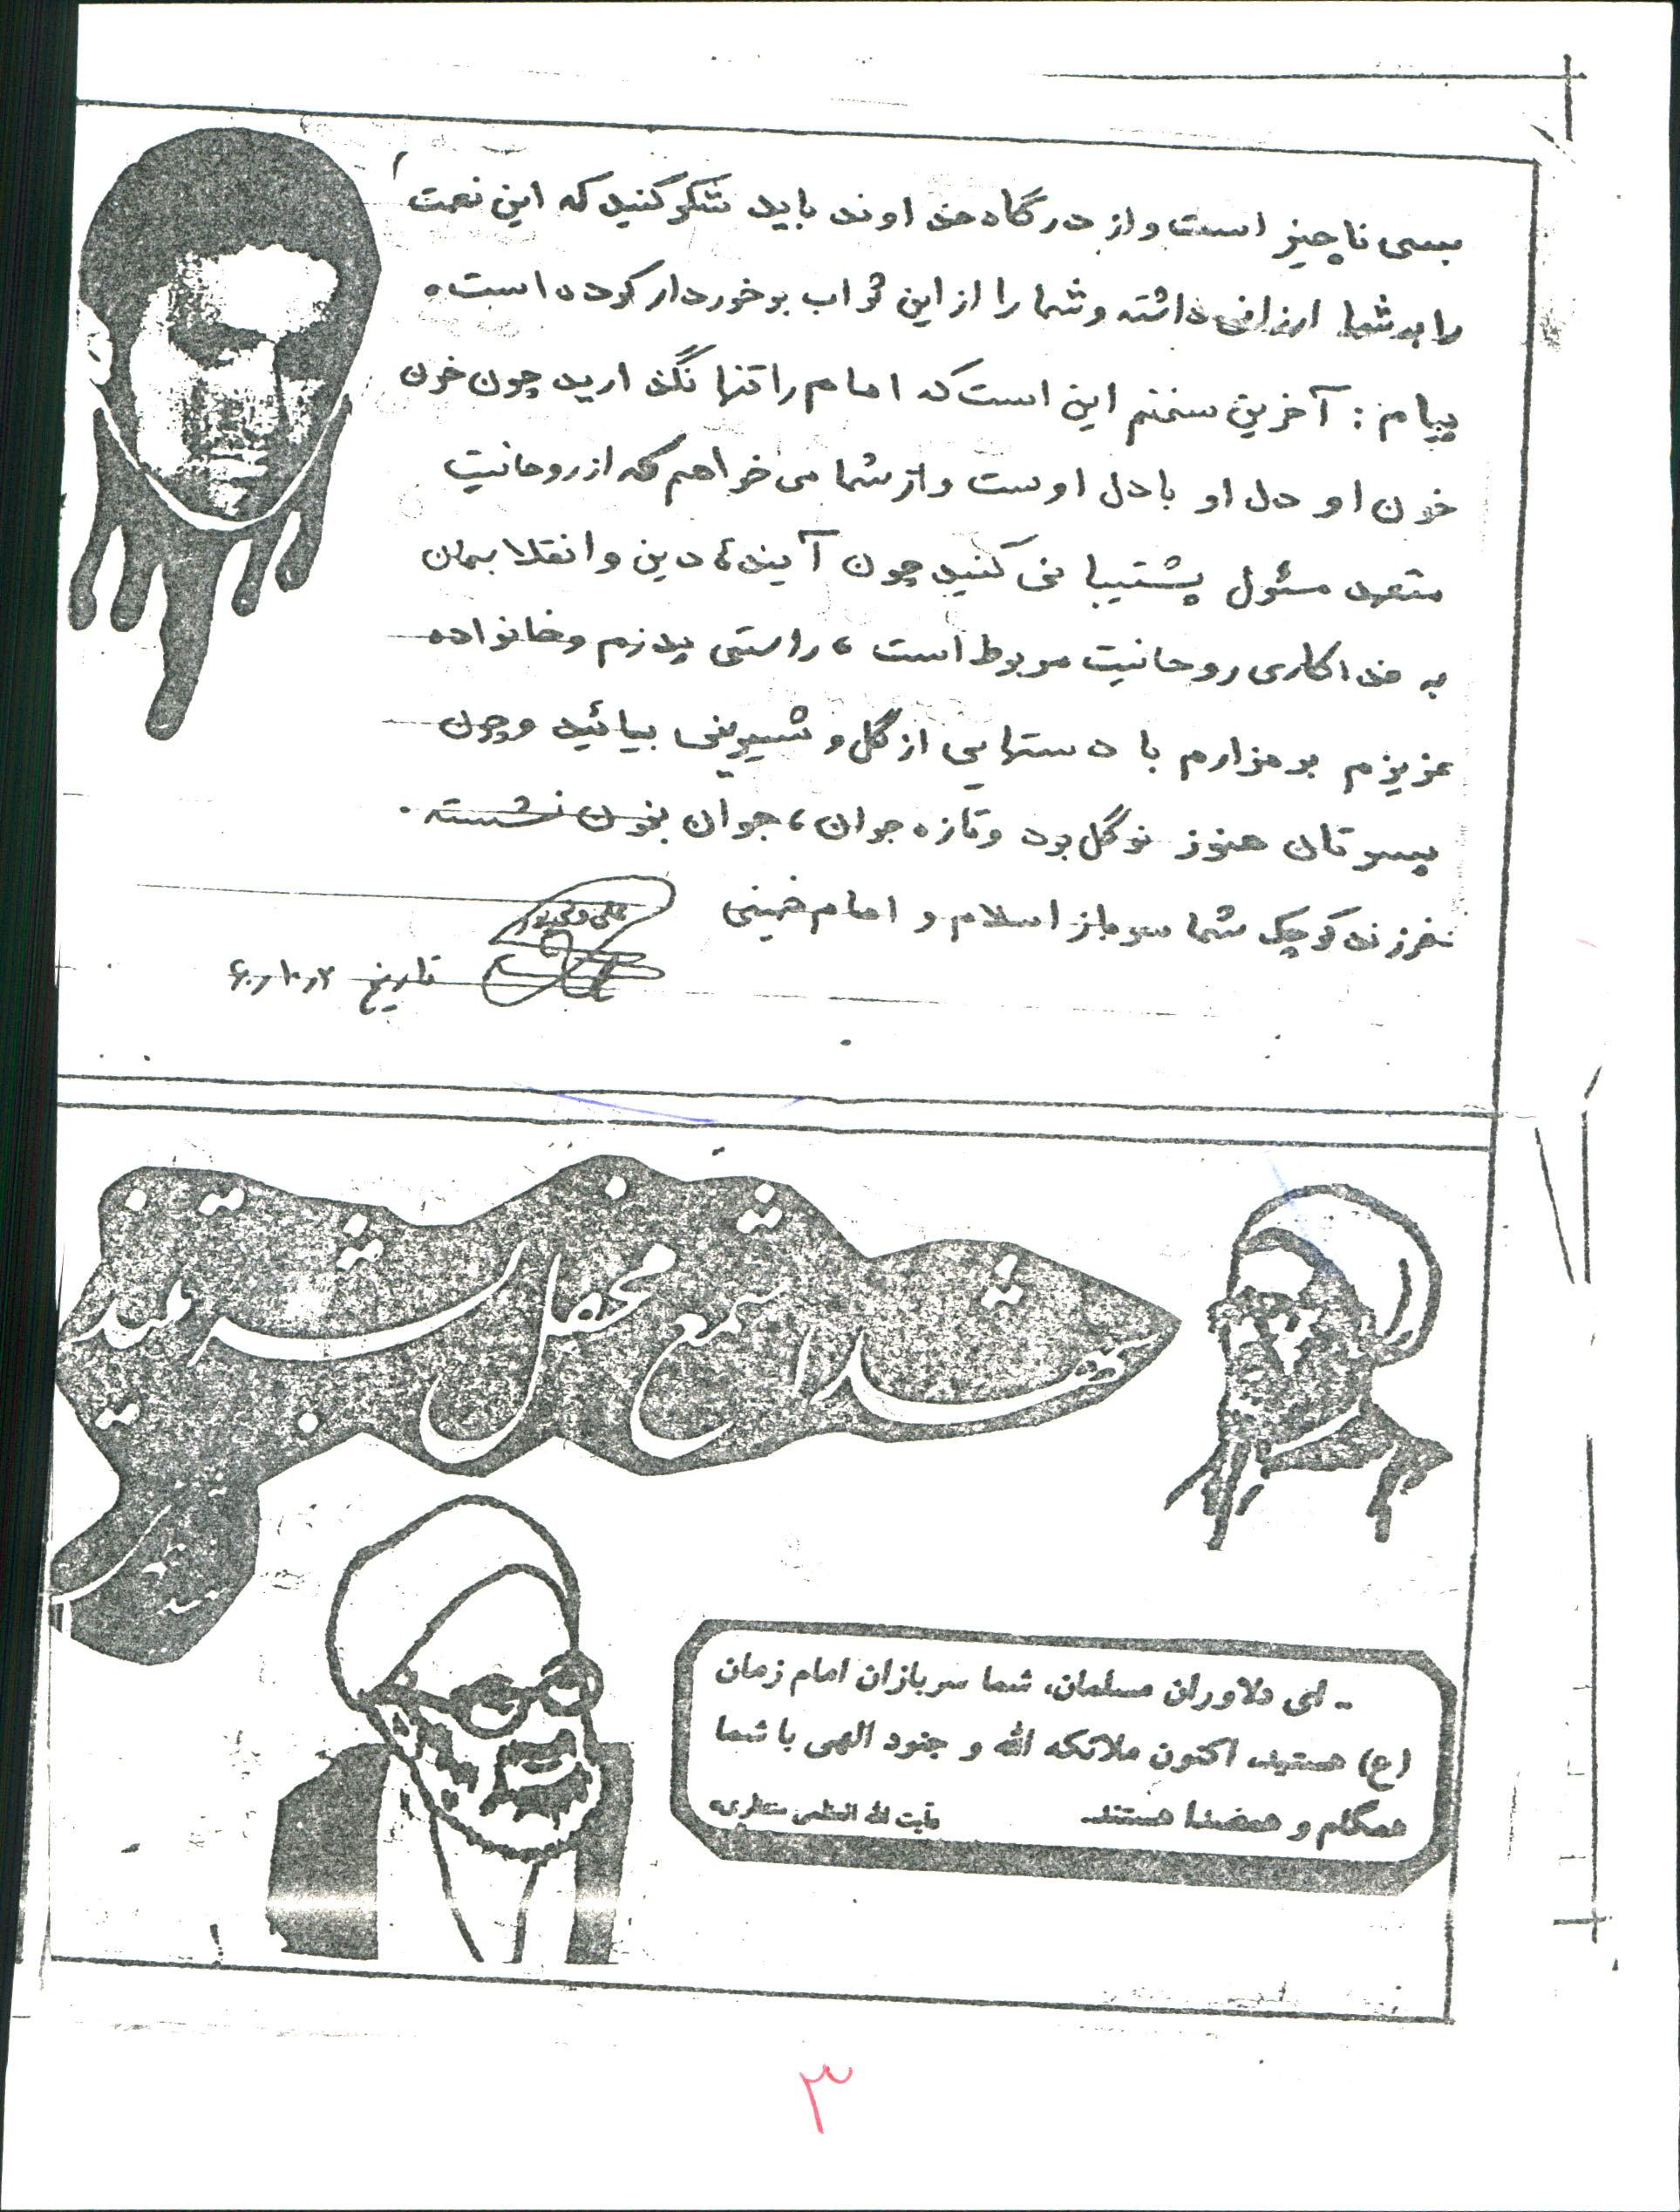 بسی ناچیز است و از درگاه خداوند باید شکر کنید که این نعمت
را به شما ارزانی داشته و شما را از این ثواب برخوردار کرده است.
پیام: آخرین سخنم این است که امام را تنها نگذارید چون خون
خون او دل او با دل اوست و از شما می خواهم که از روحانیت
متعهد مسئول پشتیبانی کنید چون آینده دین و انقلابمان
به فداکاری روحانیت مربوط است، راستی پدرم و خانواده
عزیزم بر مزارم با دستهایی از گل و شیرینی بیائید و چون
پسرتان هنوز نوگل بود و تازه جوان، جوان بخون نشسته.
فرزند کوچک شما سرباز اسلام و امام خمینی
تاریخ ۶۰٫۱۰٫۲
شهدا شمع محفل بشریتند
شهید مطهری
- ای دلاوران مسلمان، شما سربازان امام زمان
(ع) هستید، اکنون ملائکه الله و جنود الهی با شما
همگام و همصدا هستند. «آیت الله العظمی منتظری»
۳